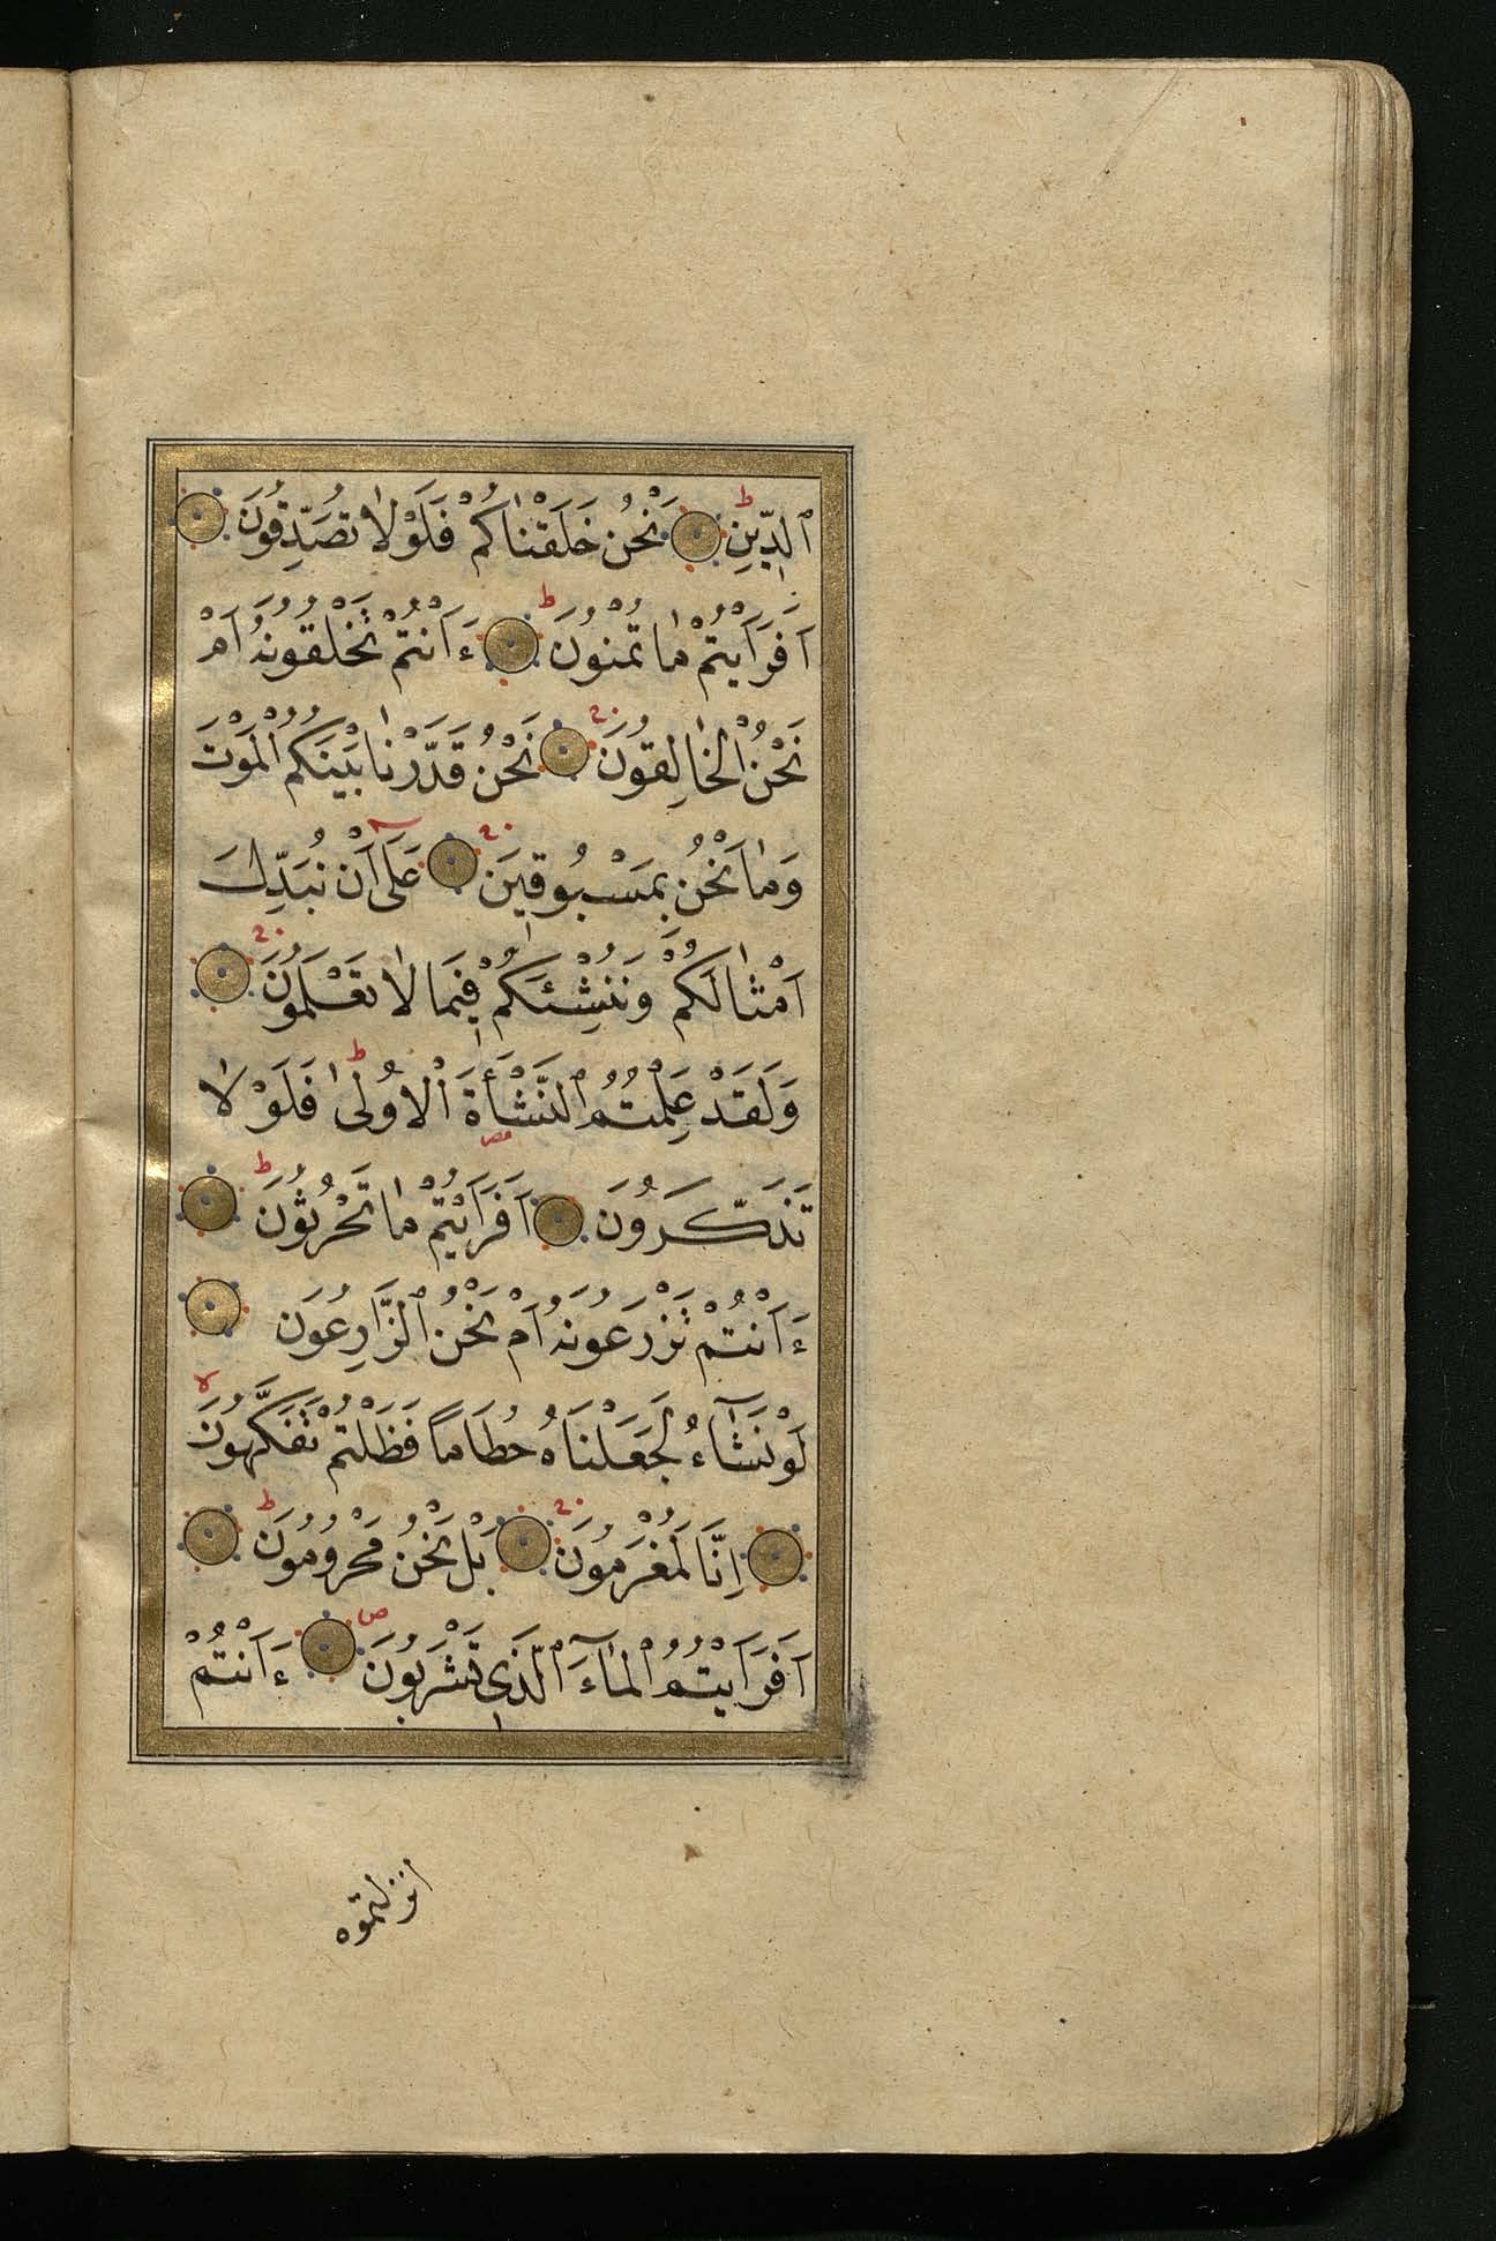 ٱلدِّينِ ط نَحْنُ خَلَقْنٰاكُمْ فَلَوْلٰا تُصَدِّقُونَ
اَفَرَاَيْتُمْ مٰا تُمْنُونَ ط ءَاَنْتُمْ تَخْلُقُونَهُ اَمْ
نَحْنُ الْخٰالِقُونَ نَحْنُ قَدَّرْنٰا بَيْنَكُمُ الْمَوْتَ
وَمٰا نَحْنُ بِمَسْبُوقِينَ عَلَىٰ اَنْ نُبَدِّلَ
اَمْثٰالَكُمْ وَنُنْشِئَكُمْ فِيمَا لٰا تَعْلَمُونَ
وَلَقَدْ عَلِمْتُمُ ٱلنَّشْأَةَ ٱلْاُولٰى ط فَلَوْلٰا
تَذَكَّرُونَ اَفَرَاَيْتُمْ مٰا تَحْرُثُونَ ط
ءَاَنْتُمْ تَزْرَعُونَهُ اَمْ نَحْنُ ٱلزَّارِعُونَ
لَوْ نَشَآءُ لَجَعَلْنَاهُ حُطَامًا فَظَلْتُمْ تَفَكَّهُونَ لا
اِنَّا لَمُغْرَمُونَ بَلْ نَحْنُ مَحْرُومُونَ ط
اَفَرَاَيْتُمُ ٱلْمٰآءَ ٱلَّذِى تَشْرَبُونَ ص ءَاَنْتُمْ
انزلتموه